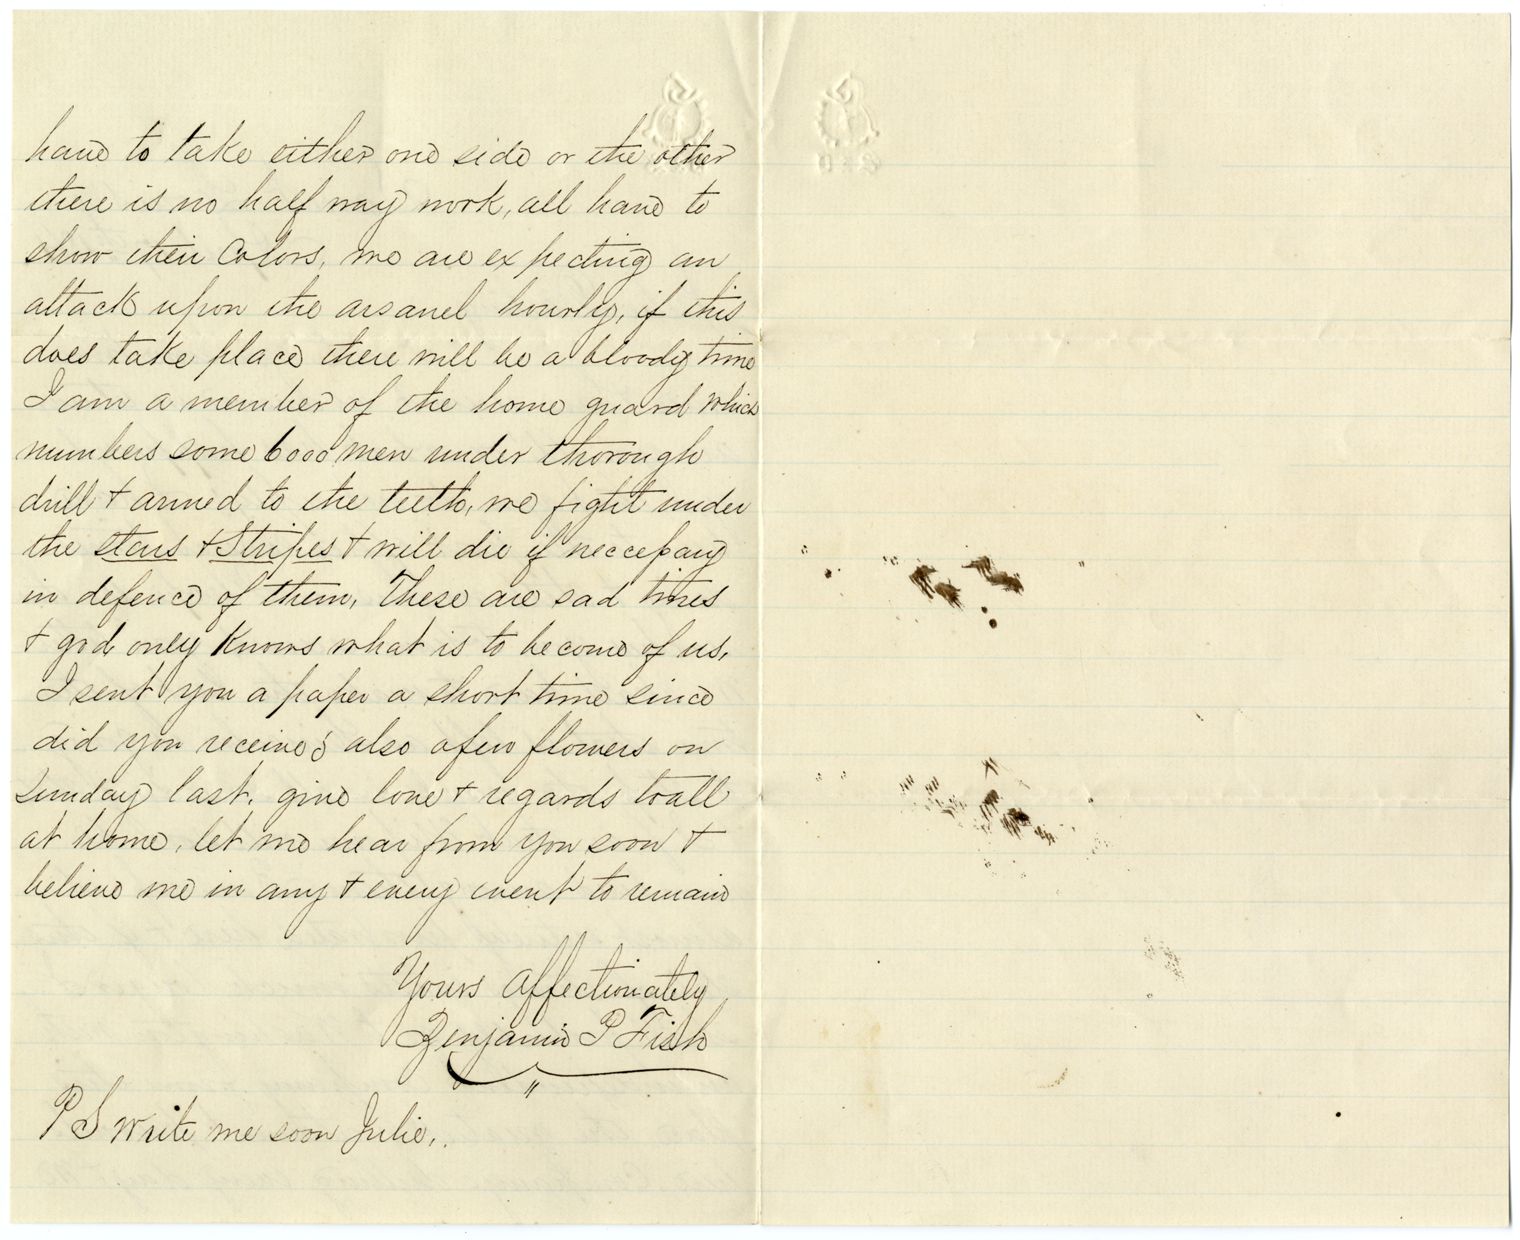 have to take either one side or the other
there is no half way work, all have to
show their Colors, we are expecting an
attack upon the arsanel hourly, if this
does take place there will be a bloody time
I am a member of the home guard which
numbers some 6000 men under thorough
drill + armed to the teeth, we fight under
the stars + Stripes + will die if neccessary
in defence of them, These are sad times
+ god only knows what is to become of us,
I sent you a paper a short time since
did you receive? also a few flowers on
Sunday last. give love + regards to all
at home, let me hear from you soon +
believe me in any + every event to remain
Yours Affectionately
Benjamin P Fish
P S write me soon Julie,.